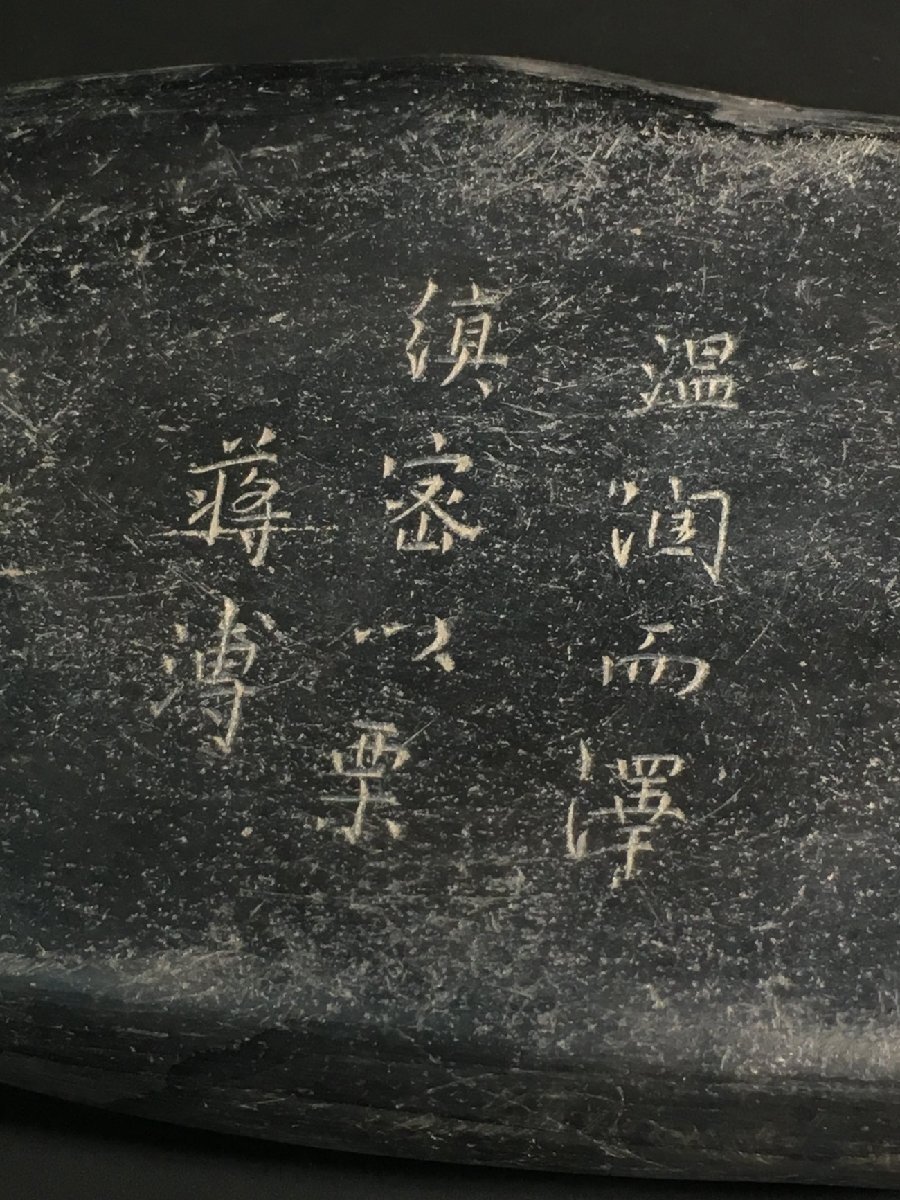 温润而澤
縝密以栗
蔣溥